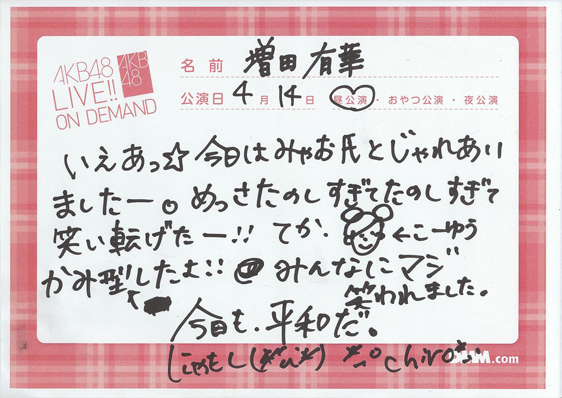 AKB48
LIVE!!
ON DEMAND
AKB
48
名前 増田有華
公演日 4月14日 昼公演・おやつ公演・夜公演
いえあっ☆今日はみやお氏とじゃれあい
ましたー。めっさたのしすぎてたのしすぎて
笑い転げたー!! てか、←こーゆう
かみ型したよ!! みんなにマジ
笑われました。
今日も、平和だ。
chiro
.com